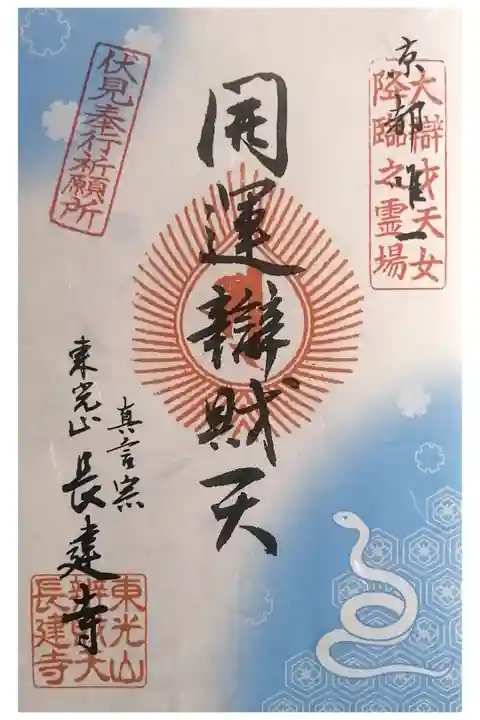 京都唯一
大辯才天女
降臨之霊場
開運辯財天
伏見奉行祈願所
真言宗
東光山
長建寺
東光山
辨財天
長建寺